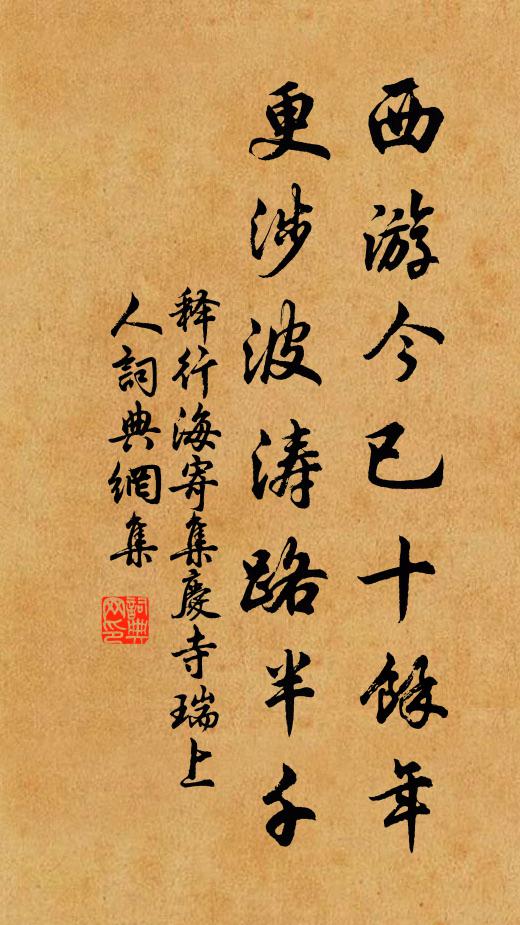 西游今已十餘年
更涉波涛路半千
释行海寄集慶寺瑞上
人詞典網集
詞典
网印